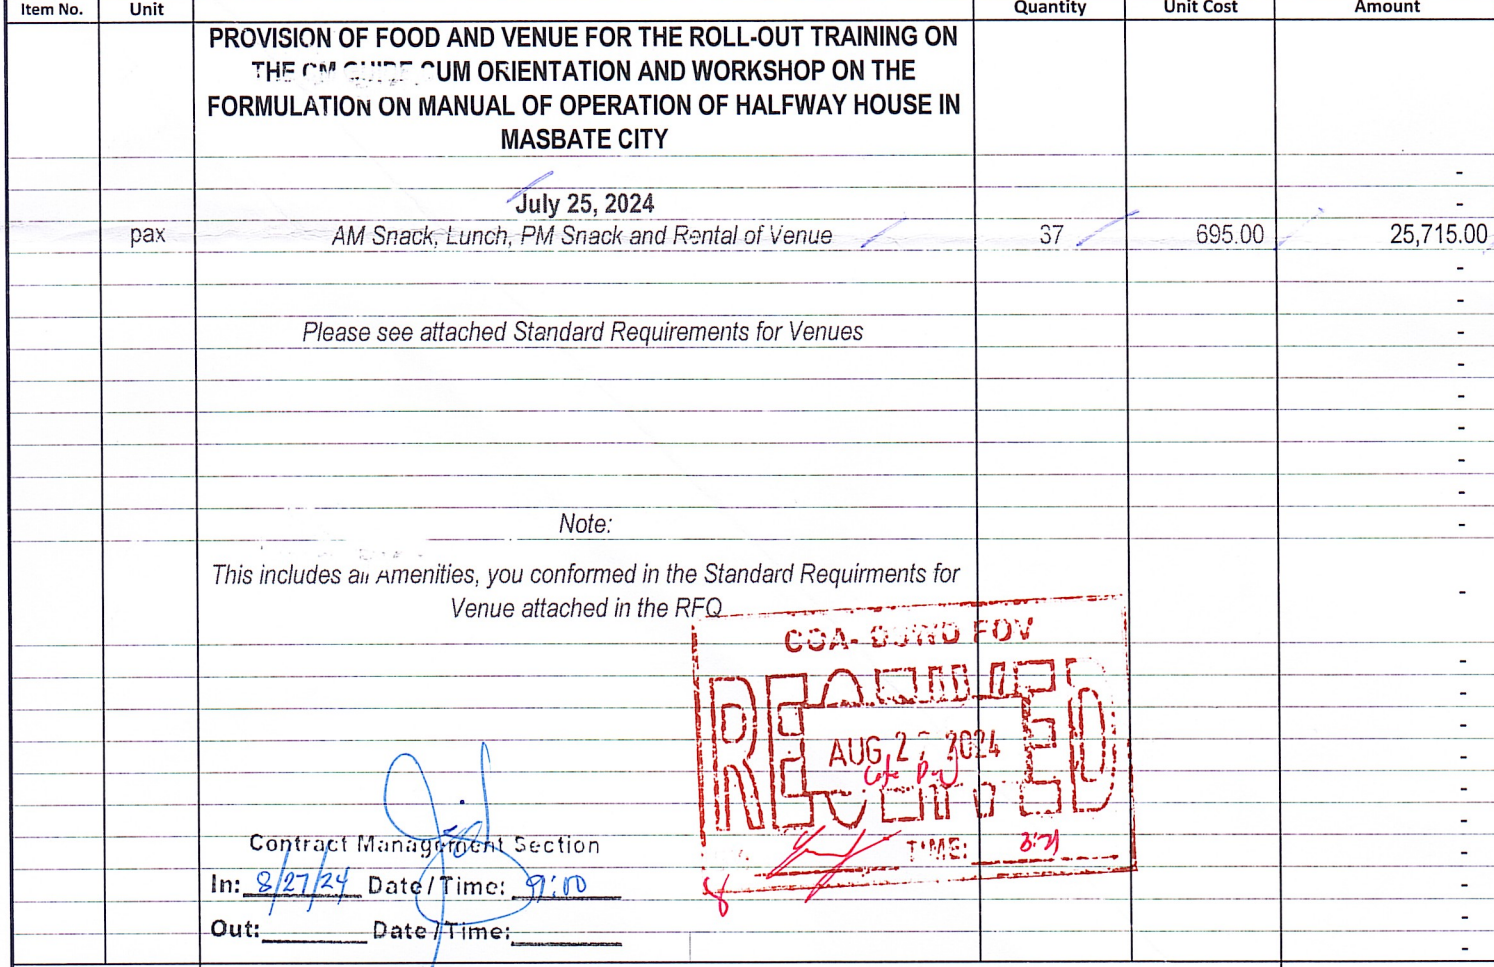 Item No. Unit Quantity Unit Cost Amount
PROVISION OF FOOD AND VENUE FOR THE ROLL-OUT TRAINING ON
THE CM GUIDE CUM ORIENTATION AND WORKSHOP ON THE
FORMULATION ON MANUAL OF OPERATION OF HALFWAY HOUSE IN
MASBATE CITY
-
July 25, 2024 -
pax AM Snack, Lunch, PM Snack and Rental of Venue 37 695.00 25,715.00
-
-
Please see attached Standard Requirements for Venues -
-
-
-
-
-
Note: -
This includes all Amenities, you conformed in the Standard Requirments for
Venue attached in the RFQ -
COA- DSWD FOV
-
RECEIVED
-
-
AUG 27 2024
-
-
-
Contract Management Section TIME: 3:21
-
In: 8/27/24 Date/Time: 9:00 -
Out: Date/Time: -
-